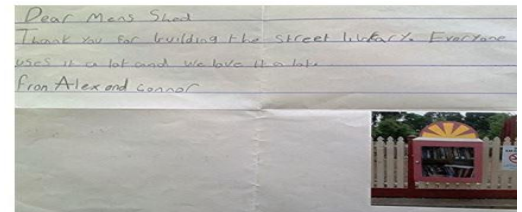 Dear Mens Shed
Thank you for building the street library. Everyone
uses it a lot and we love it a lot.
from Alex and Connor